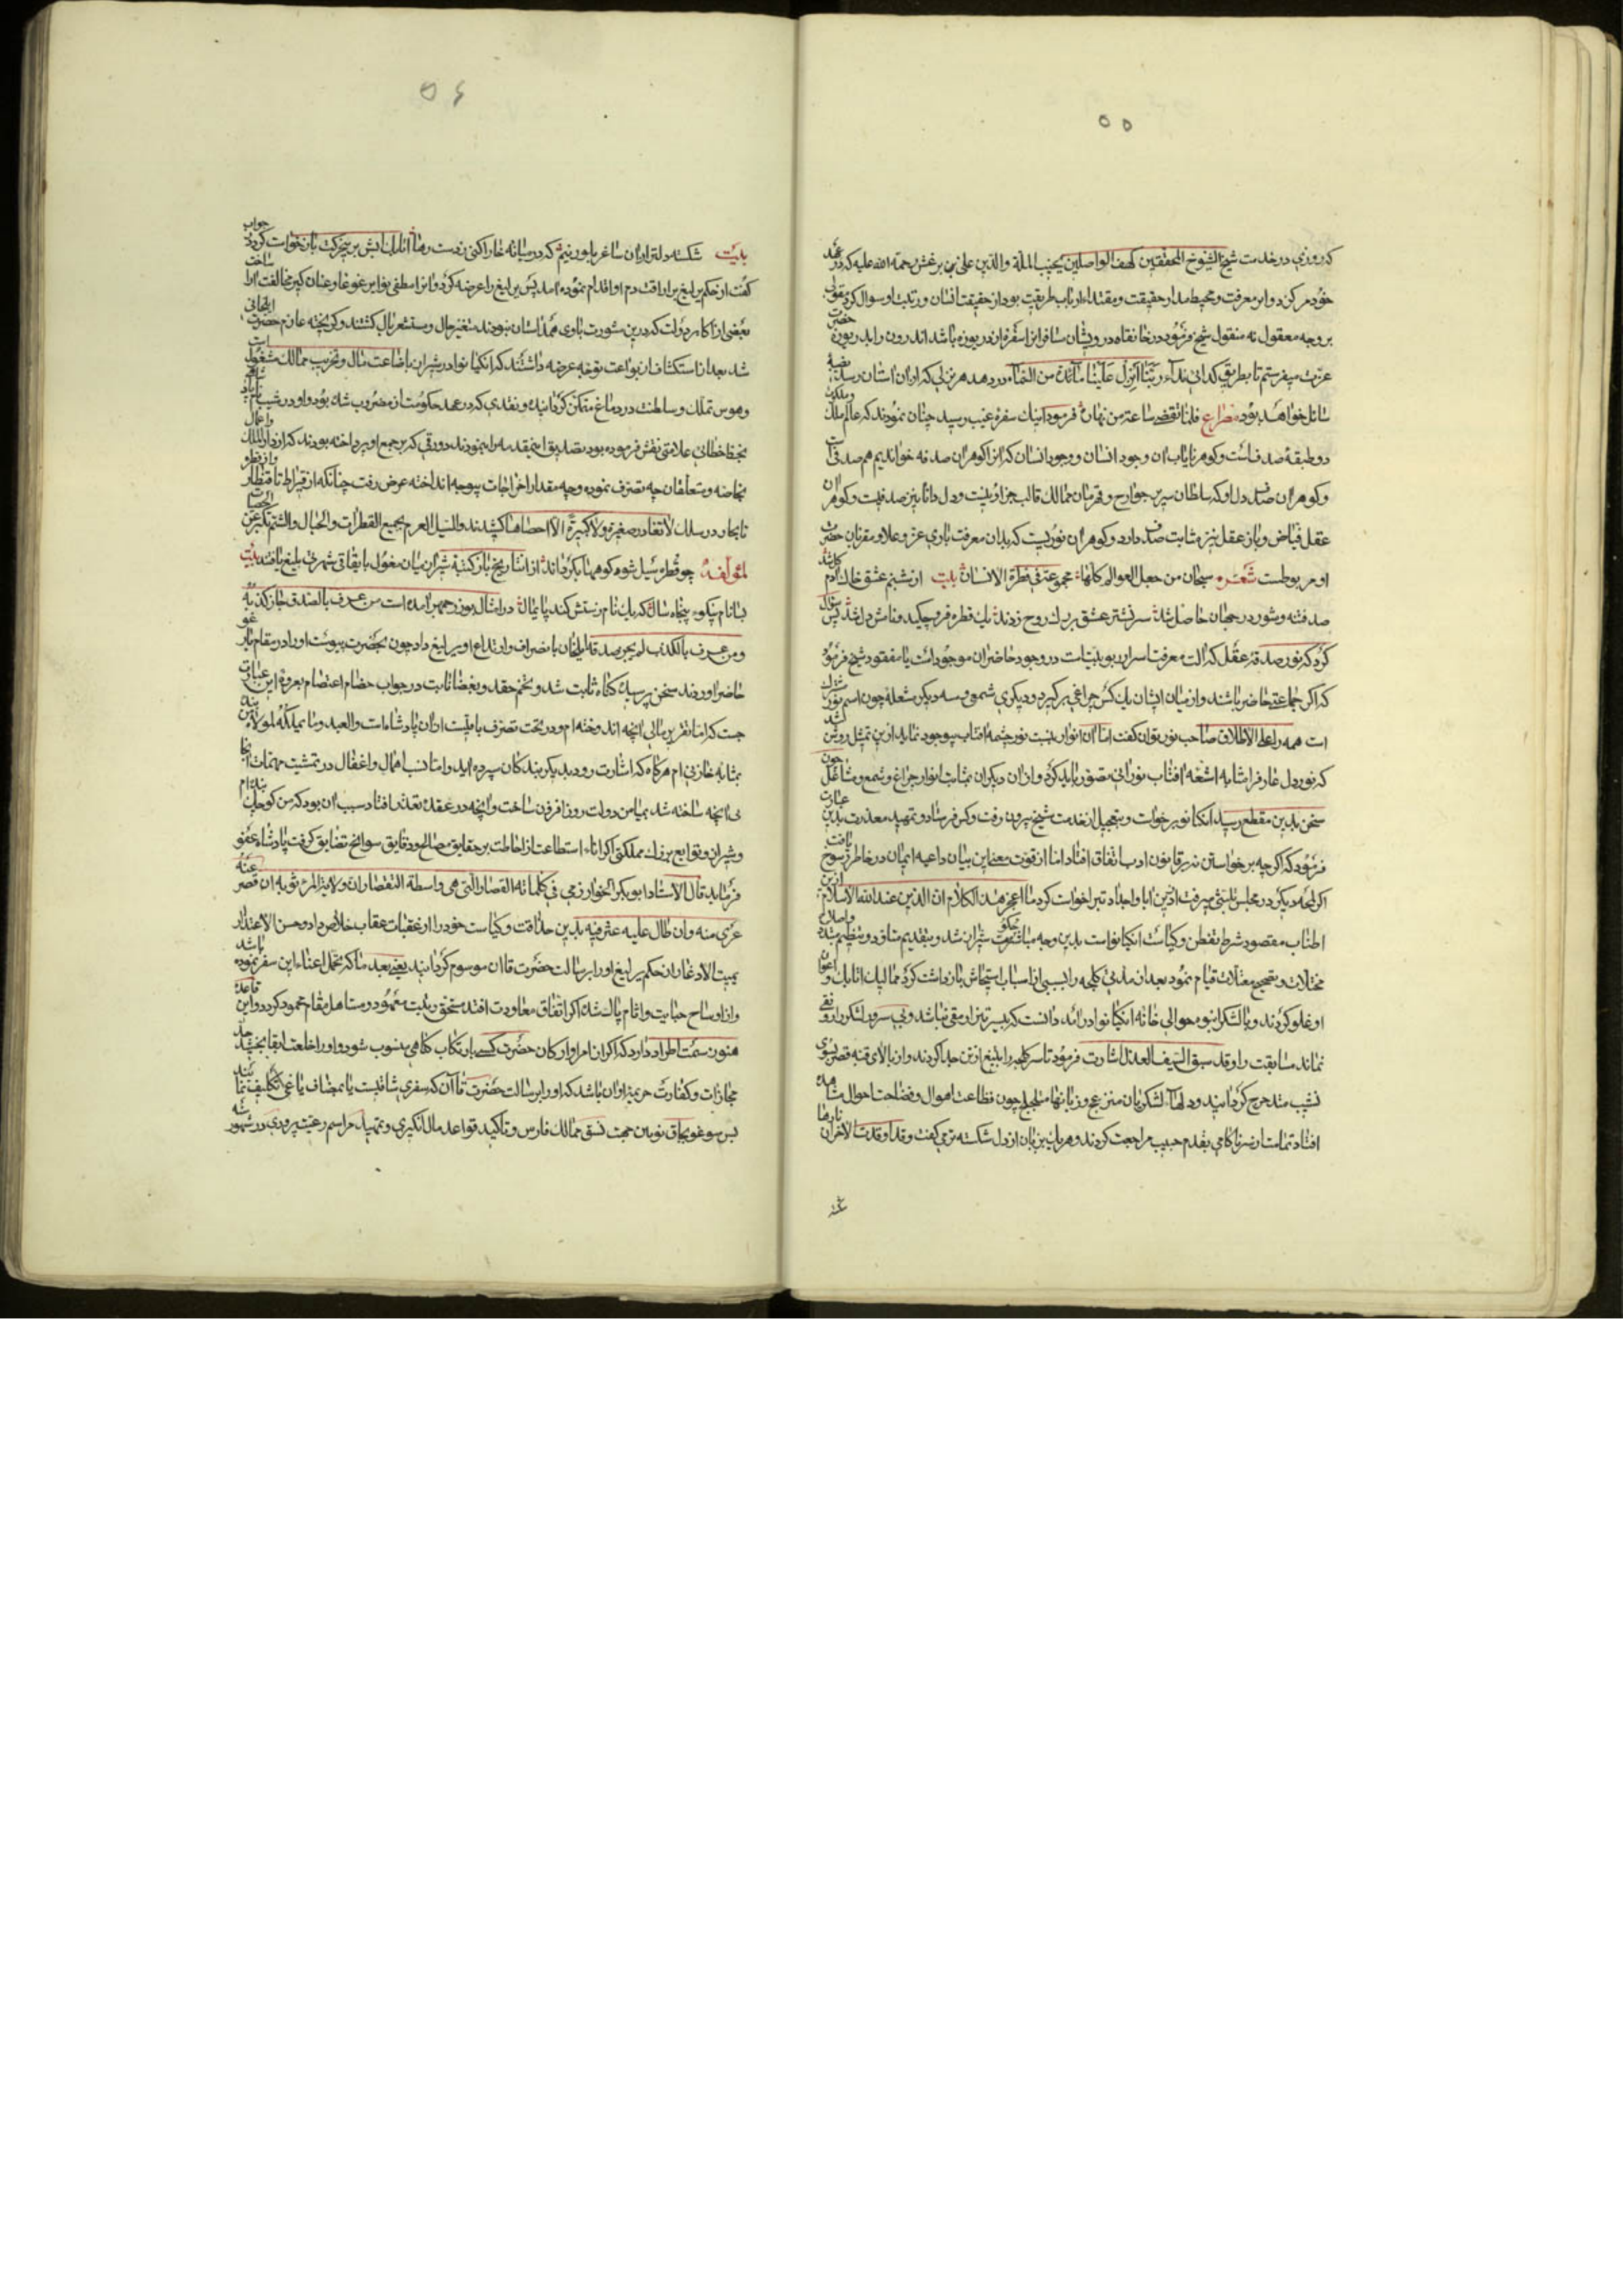 ۵۵
که روزی در خدمت شیخ الشیوخ المحققین کهف الواصلین نجیب الملة والدین علی بن برغش رحمة الله علیه که در عهد
خود مرکز دوایر معرفت و محیط مدار حقیقت و مقتداء ارباب طریقت بود از حقیقت انسان و رتبت او سوال کرد مقولی
بر وجه معقول نه منقول شیخ فرمود در خانقاه درویشان مسافر از سفره دریوزه باشد اندرون را بدر بیرون حضرت
عزت میفرستم تا بطریق گدائی نداء ربنا انزل علینا مائدة من السماء در دهد هر نزلی که از آن استان رسد
شما تل خواهد بود مصراع فلما تقضی ساعة من نهار فرمود اینک سفره غیب رسید چنان نمودند که عالم ملک و ملکوت
دو طبقه صدفست و گوهر نایاب آن وجود انسان و وجود انسان که از گوهر آن صدفه خواندیم هم صدفی است
و گوهر آن صدف دل او که سلطان سریر جوارح و قهرمان ممالک قالب جز او نیست و دل دانا نیز صدفیست و گوهر آن
عقل فیاض و باز عقل نیز مثابت صدف دارد و گوهر آن نوریست که بدان معرفت باری عز و علا و مقربان حضرت
او مربوطست شعر سبحان من جعل العوالم کلها مجموعة فی فطرة الانسان بیت از شبنم عشق خاک آدم گل شد
صد فتنه و شور در جهان حاصل شد سر نشتر عشق بر رگ روح زدند یک قطره فرو چکید و نامش دل شد پس سوال
کرد که نور صدقه عقل که الت معرفت اسرار ربوبیتست در وجود حاضران موجودست یا مفقود شیخ فرمود
که اگر جماعتی حاضر باشند و از میان ایشان یک کس چراغی برگیرد و دیگری شمعی و سه دیگر مشعله چون اسم نور مشترک
است همه را علی الاطلاق صاحب نور توان گفت اما آن انوار بنسبت نور چشمه افتاب بوجود نماید ازین تمثیل روشن شد
که نور دل عارف را مشابه اشعه افتاب نورانی تصور باید کرد و از آن دیگران بمثابت انوار چراغ و شمع و مشاعل چون
سخن بدین مقطع رسید انکیانو برخواست و بتعجیل از خدمت شیخ بیرون رفت و کس فرستاد و تمهید معذرت بدین عبارت
فرمود که اگر چه برخواستن نه بر قانون ادب اتفاق افتاد اما از قوت معنای این بیان داعیه ایمان در خاطر رسوخ یافت
اگر لمحه دیگر در مجلس تلبثی میرفت از دین ابا و اجداد تبرا خواست کرد ما اعجز هذا الکلام ان الدین عند الله الاسلام ازین
اطناب مقصود شرط تفطن و کیاست انکیانو است بدین وجه مباشر حکومت شیراز شد و بتقدیم متاود و تنظیم متبدد و اصلاح
مختلات و تصحیح معتلات قیام نمود بعد از مدتی کلجه را بسببی از اسباب استیحاش بازداشت کرد ممالیک اتابک و اعوان
او غلو کردند و با لشکر انبوه حوالی خانه انکیانو در آمد دانست که بیش ازین او مقی نباشد و بی سر و لشکر را رونقی
نماند مسابقت را و قد سبق السیف العذل اشارت فرمود تا سر کلجه را بتیغ از تن جدا کردند و از بالای قبه قصر بسوی
نشیب متدحرج گردانید و دلهاء لشکریان منزعج و زبانها متلجلج چون فظاعت اهوال و فضاحت احوال مشاهده
افتاد تمامت از سر ناکامی بقدم خیبت مراجعت کردند و هر یک بزبان از دل شکسته تر می گفت و قد اوقدت الاحزان نارها
۵۶
بیت شکسته دلتر از آن ساغر بلورینم که در میانه خارا کنی ز دست رها اتابک ابش بر چه حرکت بازخواست کرد در جواب
گفت از حکم یرلیغ بر اراقت دم او اقدام نموده آمد پس یرلیغ را عرضه کرد و نایره اصطفی نوایر غوغا و عنان گیر مخالفت را ساخت
بعضی از اکابر دولت که در این مشورت با وی همداستان نبودند متغیر حال و مستشعر بال گشتند و گریخته عازم حضرت ایلخانی
شد بعد از استکشاف از بواعث توجه عرضه داشتند که انکیانو در شیراز باضاعت مال و تخریب ممالک مشغولست
و هوس تملک و سلطنت در دماغ متمکن گردانیده و نقدی که در عهد حکومت او مضروب شده بود و او در شیب نام
بخط خطائی علامتی نقش فرموده بود تصدیق این مقدمه را نمودند و ورقی که بر جمع او پرداخته بودند که از دار الملک و اعمال
بخاصه و متعلقان چه تصرف نموده وجه مقدار اخراجات بیوجه انداخته عرض رفت چنانکه از قیراط تا قنطار و از قطره
تا بحار در سلک لا تغادر صغیرة ولا کبیرة الا احصاها کشیدند والسیل العرم یجمع القطرات والجبال والشم تکبر عن الحصاة
لمؤلفه چو قطره سیل شود کوه همنا بگرداند از انتاریخ باز کتبه شیراز میان مغول بایقاقی شهرت بلیغ یافتند بیت
بنا نام نیکوء پنجاه سال که یک نام زشتش کند پایمال در امثال بوزرجمهر امده است من عرف بالصدق جاز کذبه
و من عرف بالکذب لم یجز صدقه ایلخان بانصراف و ارتداع او یرلیغ داد چون بحضرت پیوست او را در مقام یارغو
حاضر اوردند سخن پرسیده گناه ثابت شد و بختم حقد و بغضا ثابت در جواب خصام اعتصام بعروه این عبارت
جست که اما تقریر مالی انچه اندوخته ام و در تحت تصرف بامنست از آن پادشاه است والعبد و ما یملکه لمولاه بنده
بمثابه خازنی ام هرگاه که اشارت رود بدیگر بندگان سپرده آید و اما ذنب اهمال و اغفال در تمشیت مهمات آنجا
نی انچه ساخته شد بمیامن دولت روز افزون ساخت و انچه در عقده تعذر افتاد سبب ان بود که من کوچک بنده ام
و شیراز و توابع بزرگ مملکتی اگر اناء استطاعت از احاطت بر حقایق مصالح و دقایق سوانح تضایق گرفت پادشاه عفو
فرماید قال الاستاد ابو بکر الخوارزمی فی کلماته القصار التی هی واسطة التقصار ان ولایة المرء ثوبه ان قصر عنه
عری منه وان طال علیه عثر فیه بدین حذاقت و کیاست خود را از عقبات عقاب خلاص داد و حسن الاعتذار
یمیت الاذغار ان حکم یرلیغ او را برسالت حضرت قاان موسوم گردانید یعنی بعد ما که تحمل اعناء این سفر نموده باشد
و از اوساخ جنایت و اثام پاک شده اگر اتفاق معاودت افتد مستحق تربیت معهود و مستاهل مقام محمود گردد و این قاعده
هنوز سمت اطراد دارد که اگر از امرا و ارکان حضرت کسی بارتکاب گناهی منسوب شود و او را خلعت ابقا بخشید
مجازات و کفارت جریمه او آن باشد که او را برسالت حضرت قاآن که سفری شاقست یا بمصاف یاغی تکلیف نمایند
پس سوغونجاق نوین جهت نسق ممالک فارس و تاکید قواعد مال انگیزی و تمهید مراسم رعیت پروری در شهور